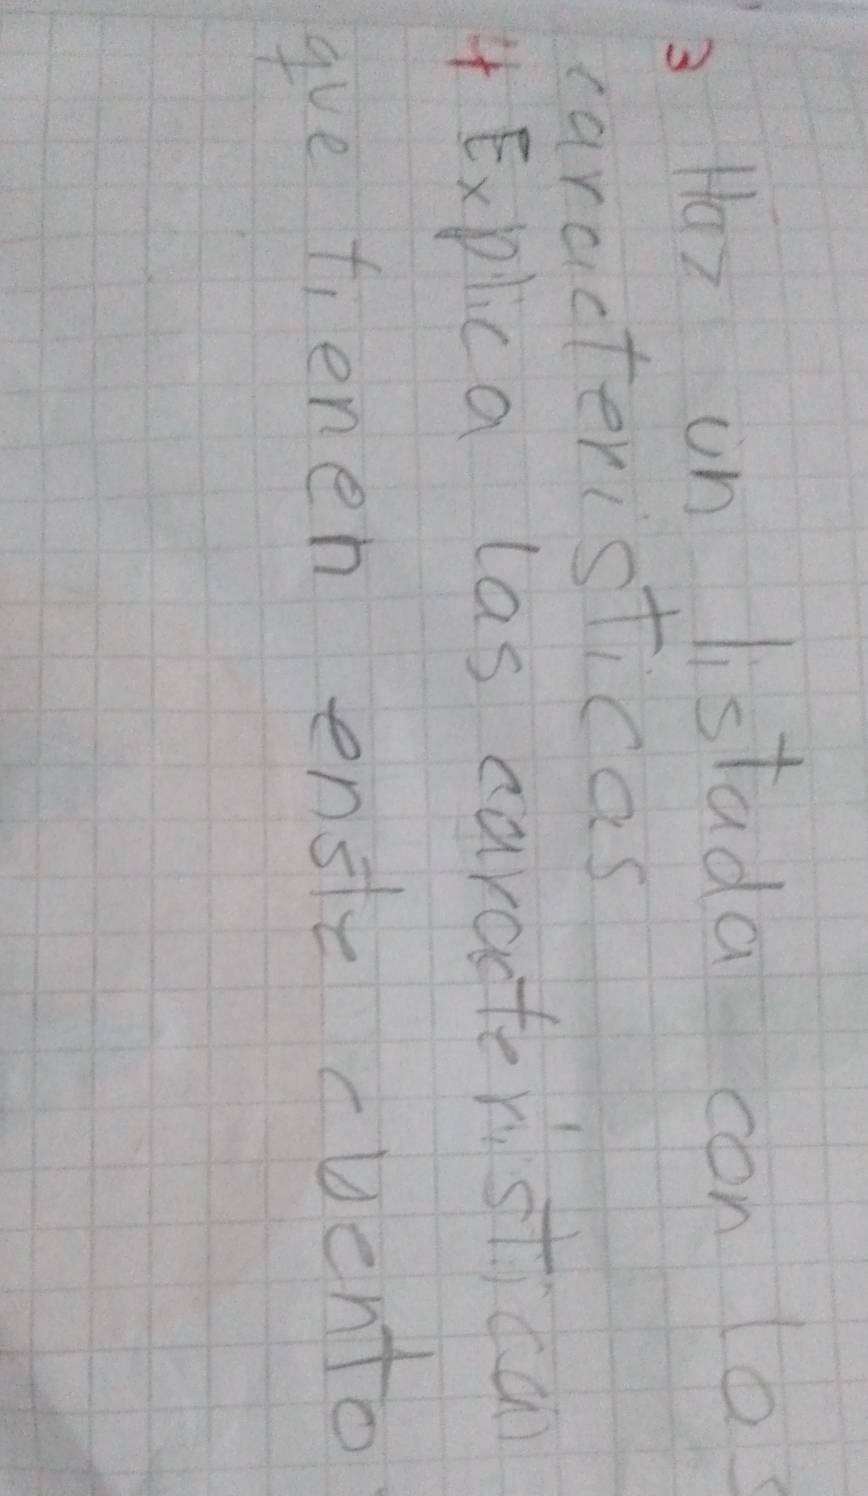 3 Haz un listada con las
caracteristicas
4 Explica las característica
que tienen enste cuento